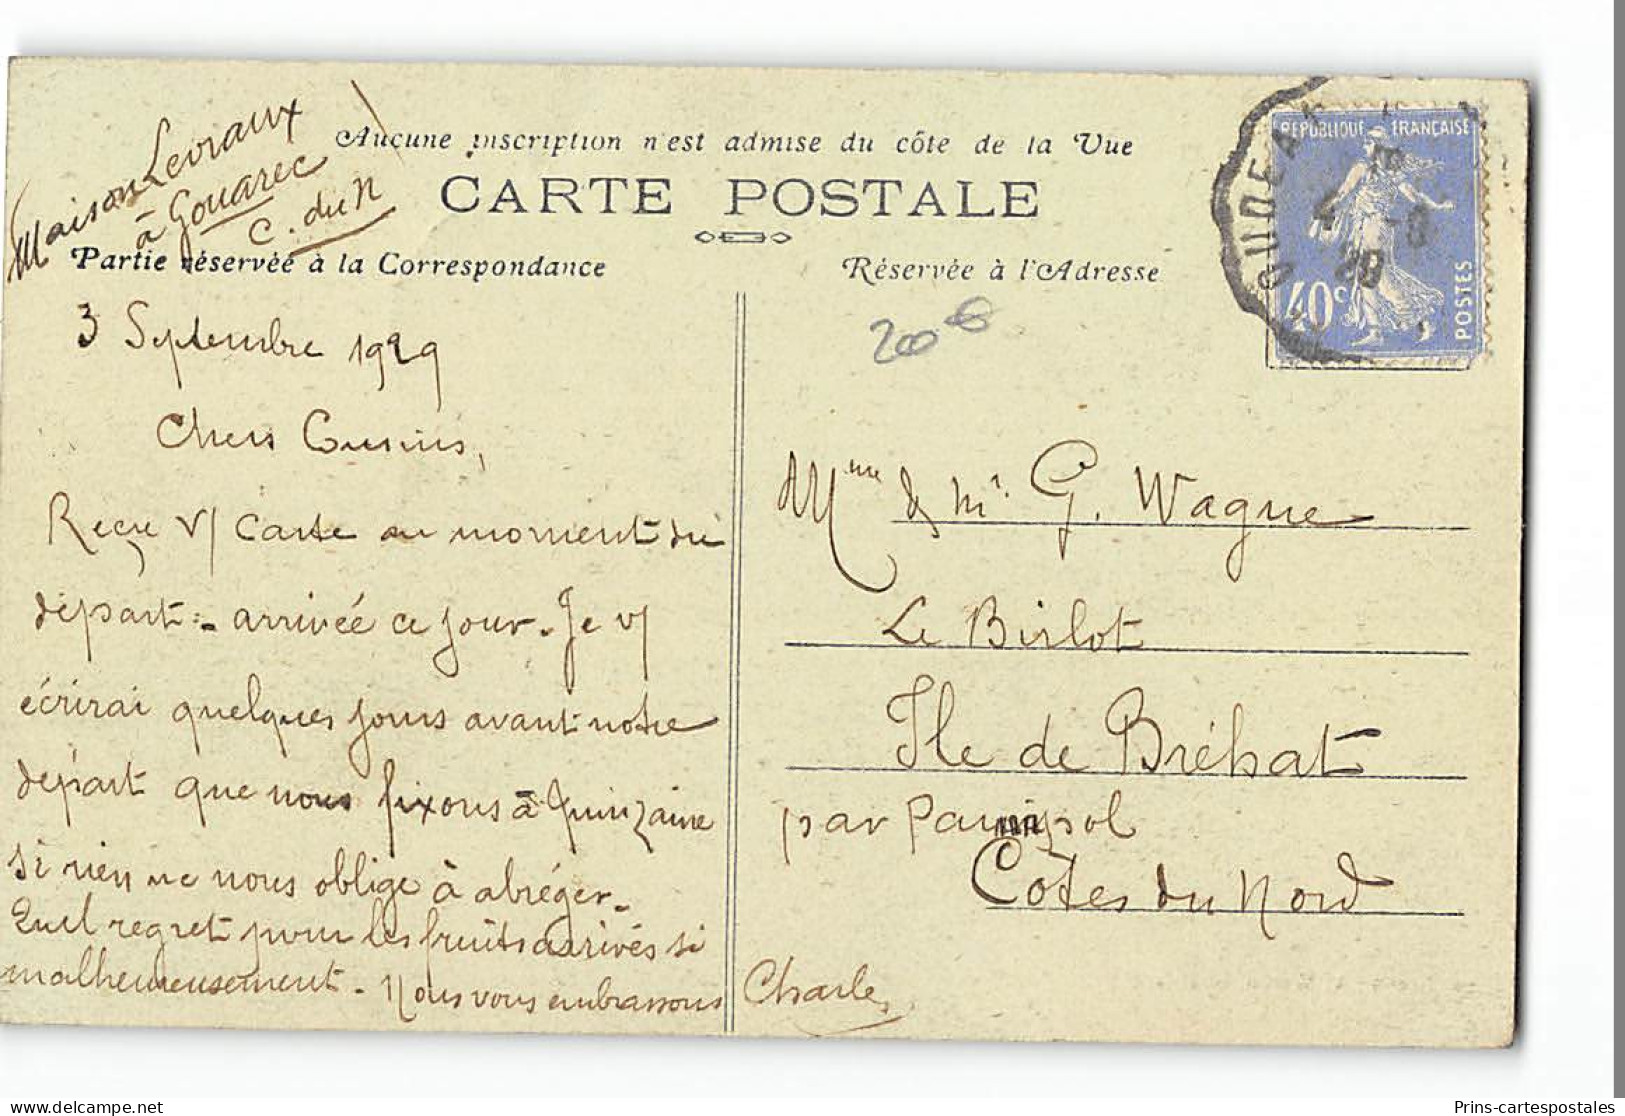 Maison Levraux
à Gouarec
C. du N
Aucune inscription n'est admise du côte de la Vue
CARTE POSTALE
Partie réservée à la Correspondance
Réservée à l'Adresse
3 Septembre 1929
Chers Cousins,
Reçu v/ carte au moment du
départ - arrivée ce jour. Je v/
écrirai quelques jours avant notre
départ que nous fixons à quinzaine
si rien ne nous oblige à abréger.
Quel regret pour les fruits arrivés si
malheureusement. Nous vous embrassons Charles
200 €
REPUBLIQUE FRANÇAISE
40c
POSTES
4 -9
29
Mme & Mr. G. Wagne
Le Birlot
Ile de Bréhat
par Paimpol
Côtes du Nord
Prins-cartespostales